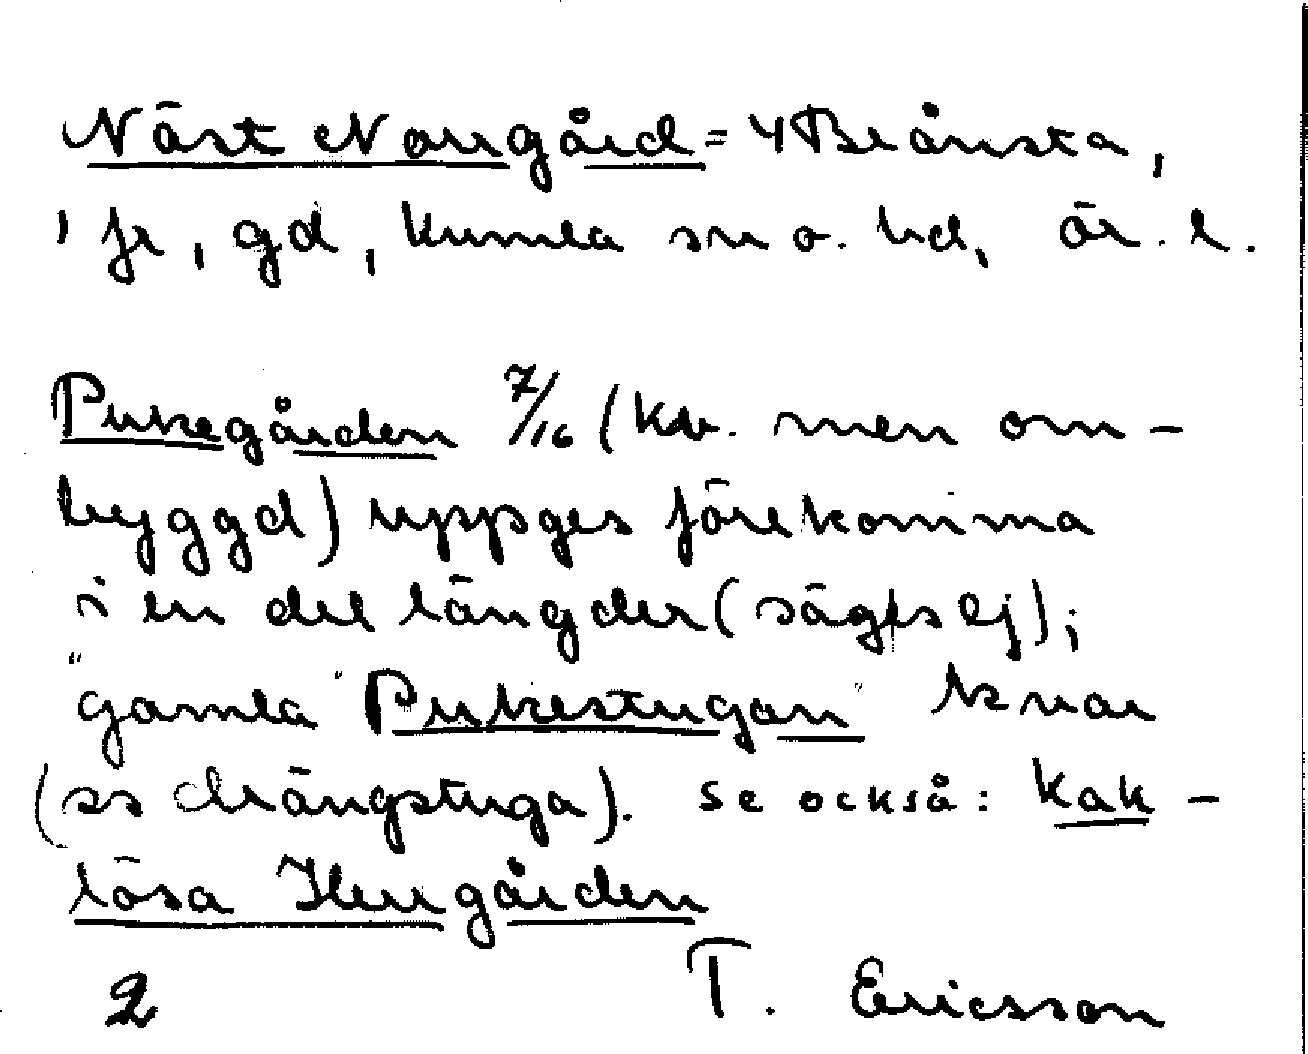 Näst Norrgård = 4 Brånsta,
1 fr, gd, Kumla sn o. hd, Ör. l.
Pukegården 7/16 (kv. men om-
byggd) uppges förekomma
i en del längder (säges ej);
"gamla" Pukestugan" kvar
(ss drängstuga). Se också: Kak-
lösa Herrgården
2 T. Ericsson